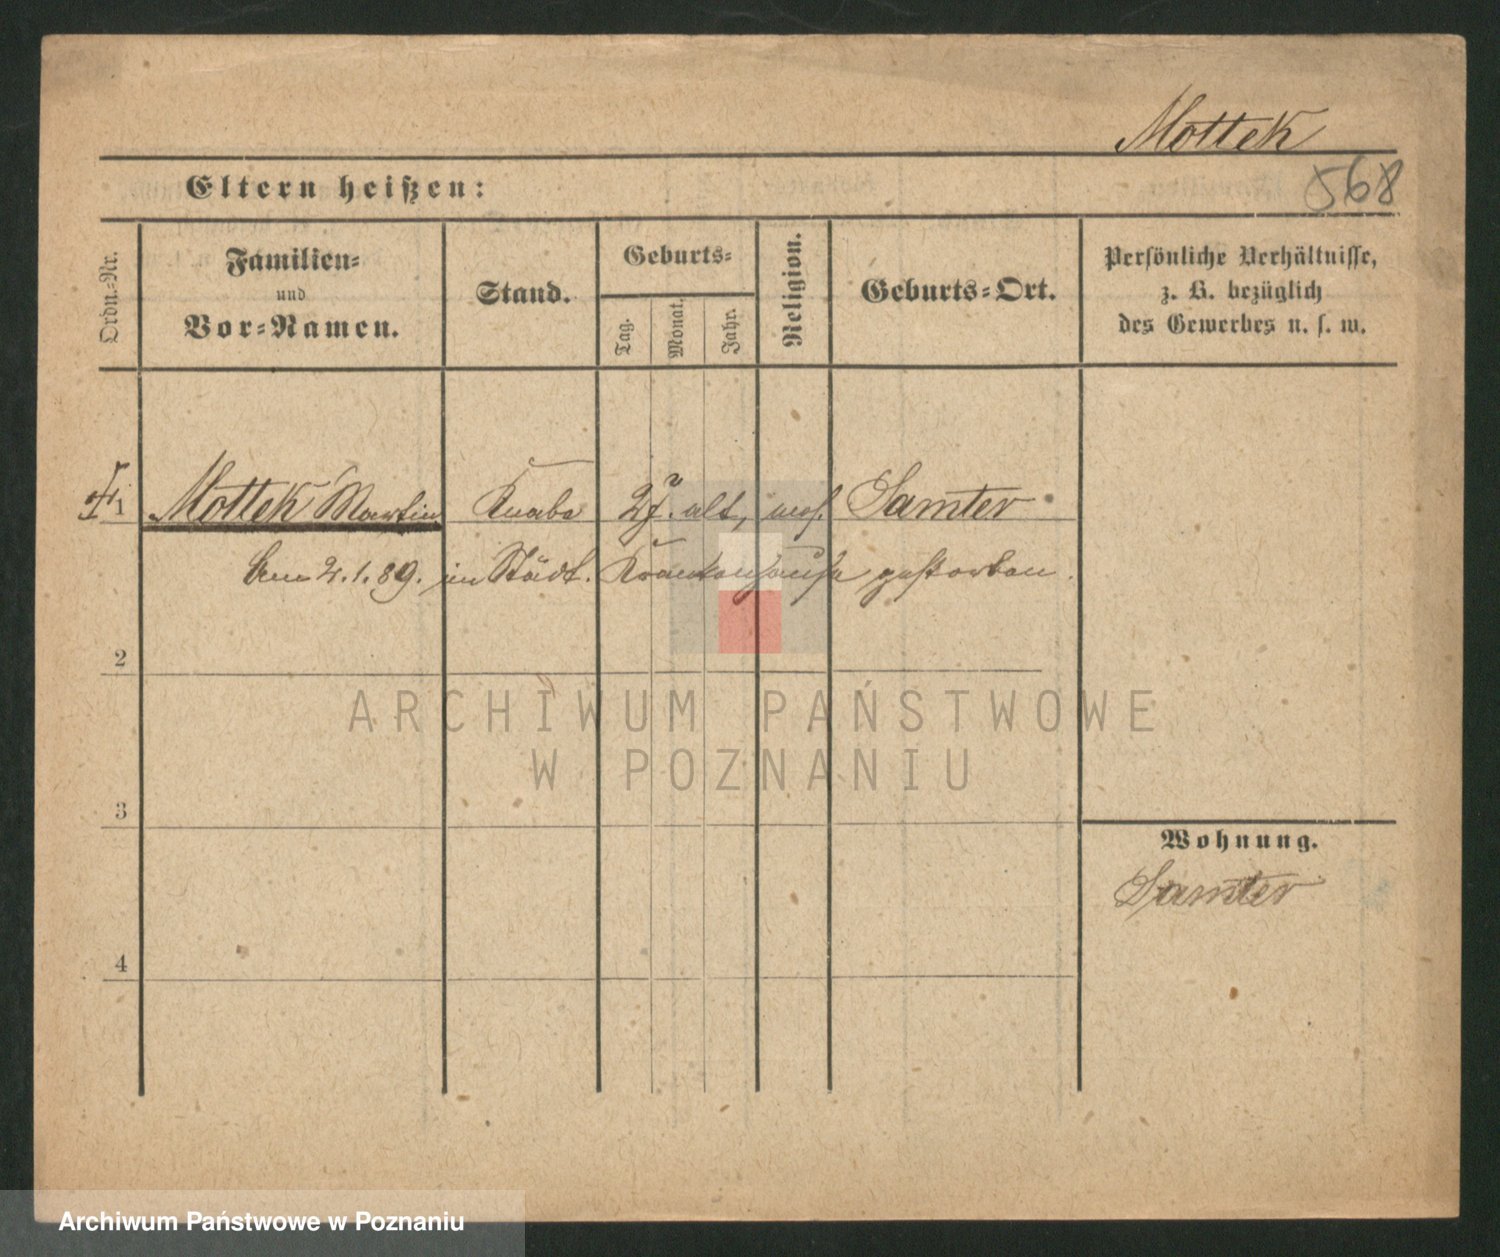 Mottek
568
Eltern heißen:
Ordn.-Nr.
Familien-
und
Vor-Namen.
Stand.
Geburts-
Tag.
Monat.
Jahr.
Religion.
Geburts-Ort.
Persönliche Verhältnisse,
z. B. bezüglich
des Gewerbes u. s. w.
1 Mottek Martin Knabe 2 J. alt, mos. Samter
Am 2.1.89. im Städt. Krankenhause gestorben.
2
3
4
Wohnung.
Samter
ARCHIWUM PAŃSTWOWE
W POZNANIU
Archiwum Państwowe w Poznaniu